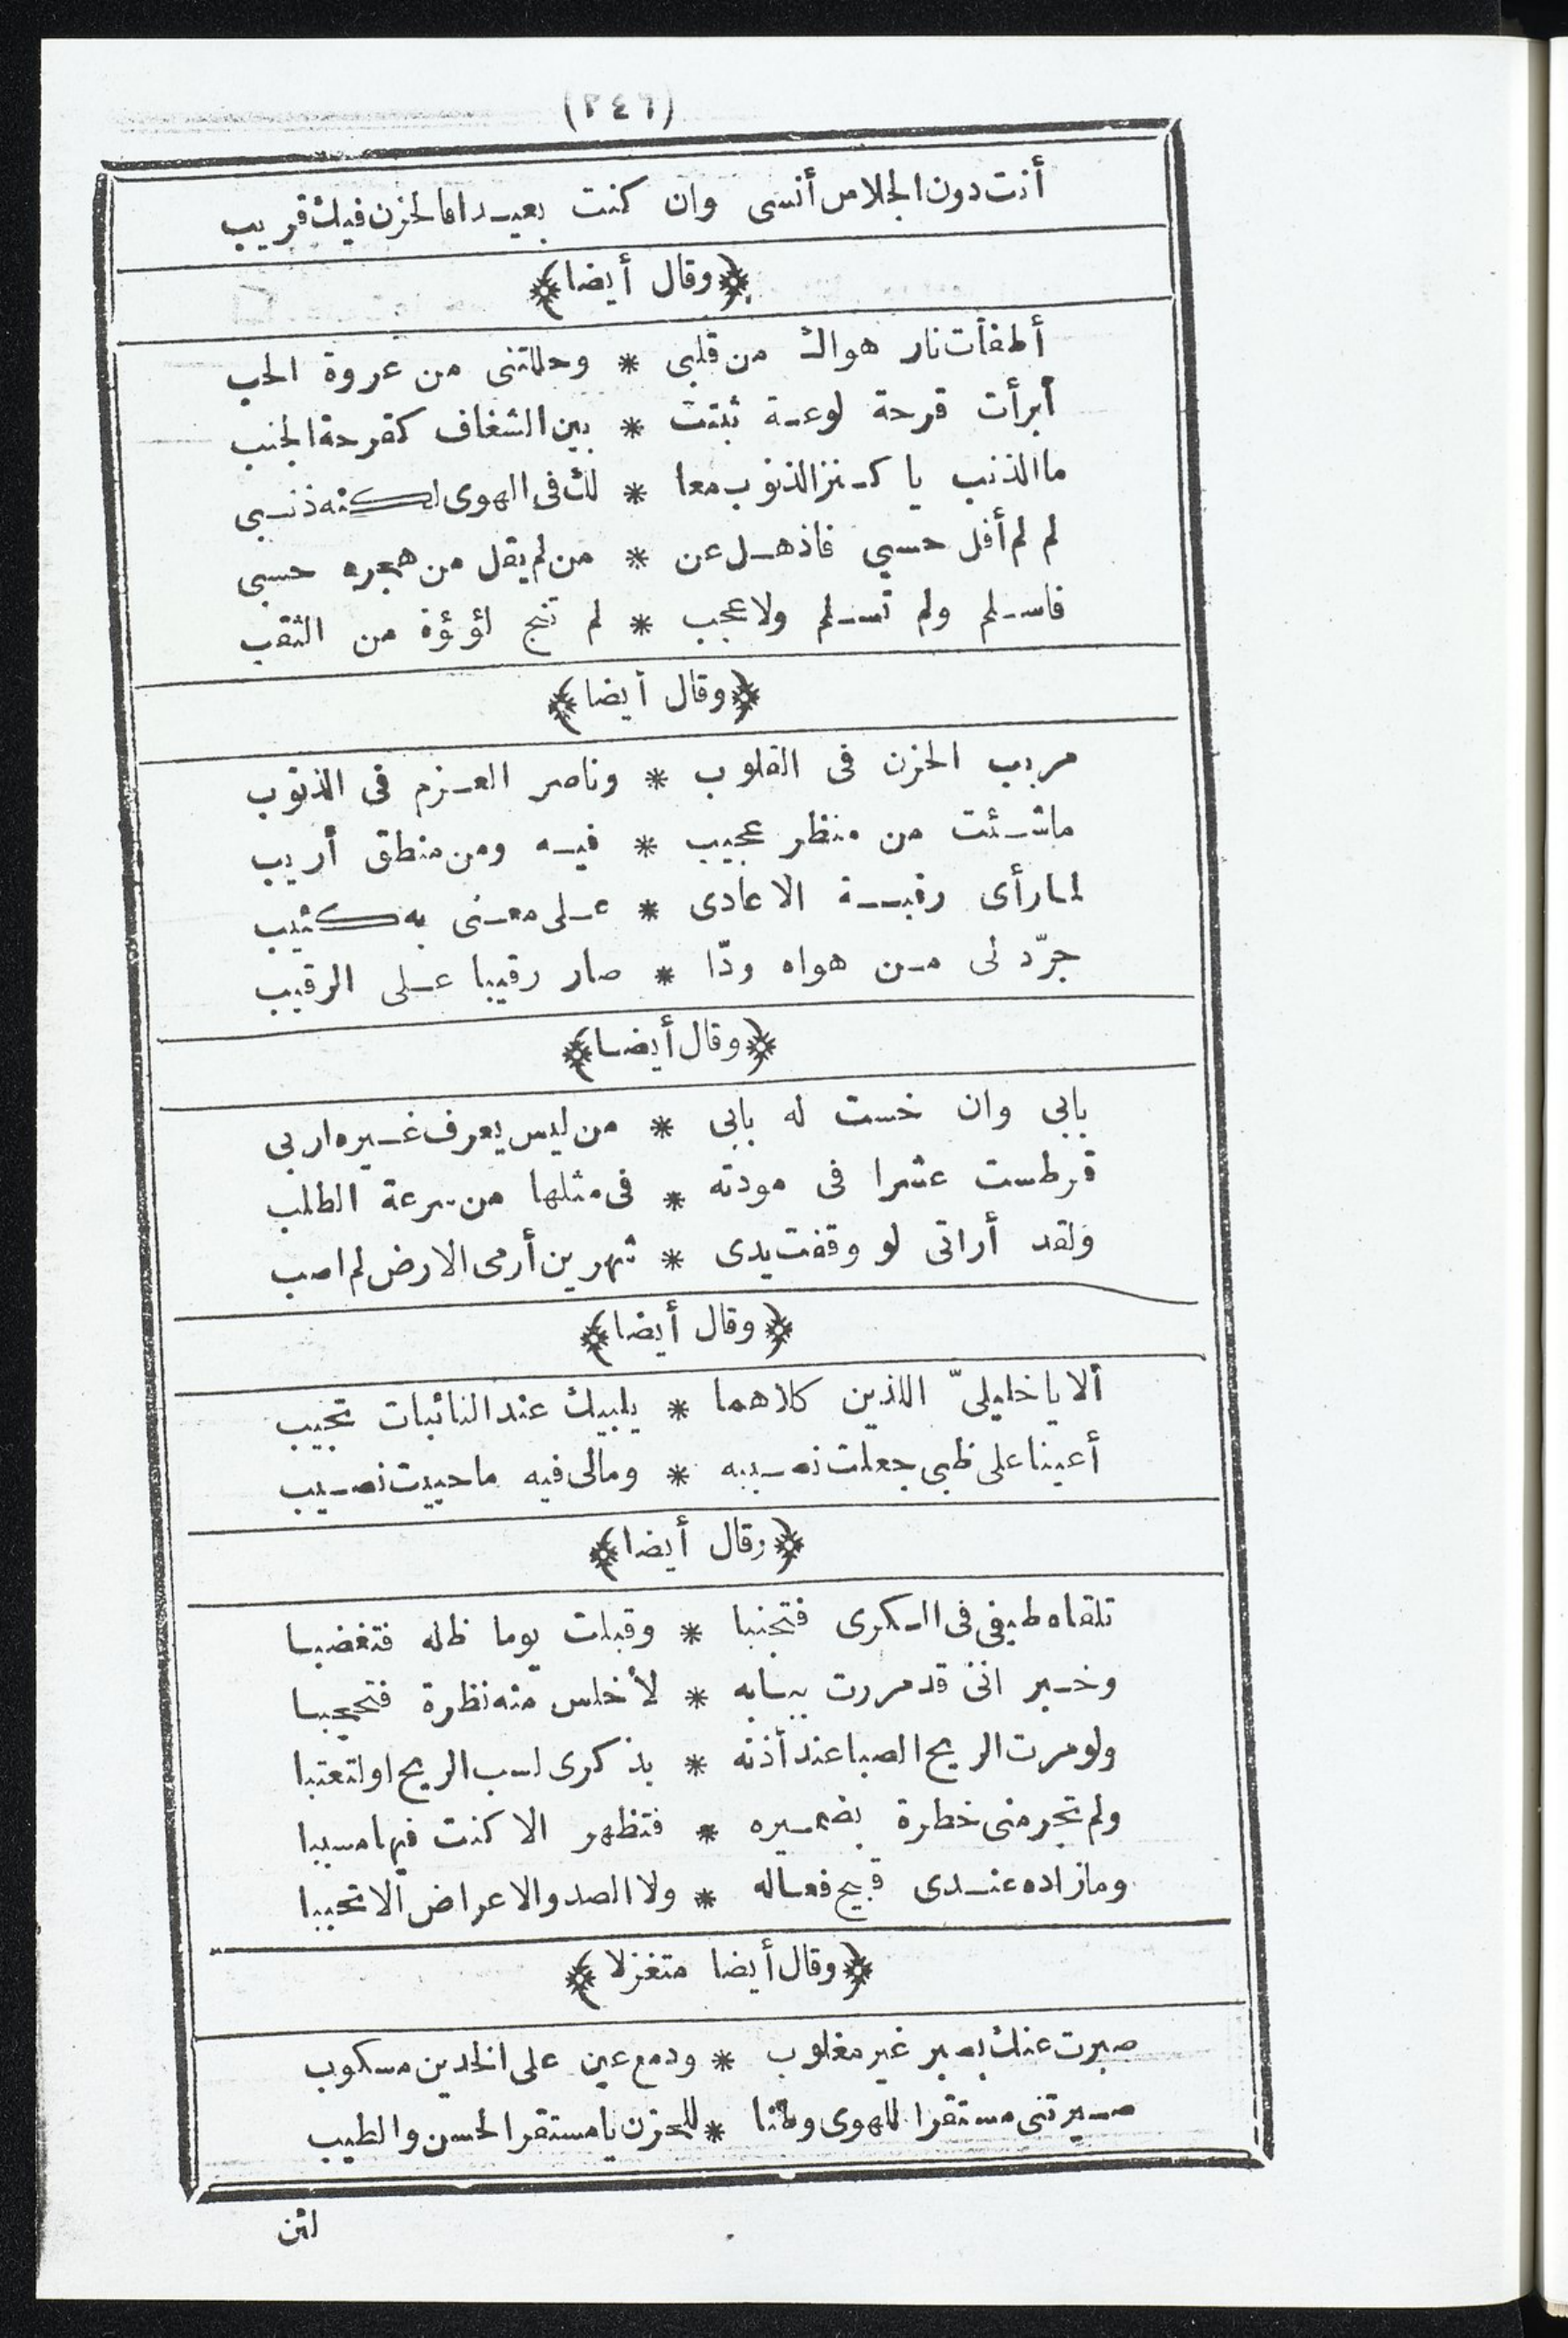 (٢٤٦)
أنت دون الجلاس أنسى وان كنت بعيدا فالحزن فيك قريب
﴿وقال أيضا﴾
أطفأت نار هواك من قلبى * وحللتنى من عروة الحب
أبرأت قرحة لوعة ثبتت * بين الشغاف كقرحة الجنب
ما الذنب يا كنز الذنوب معا * لك فى الهوى لكنه ذنبى
لم لم أقل حسبى فاذهل عن * من لم يقل من هجره حسبى
فاسلم ولم تسلم ولا عجب * لم تنج لؤلؤة من الثقب
﴿وقال أيضا﴾
مريب الحزن فى القلوب * وناصر العزم فى الذنوب
ماشئت من منظر عجيب * فيه ومن منطق أريب
لما رأى رقبة الاعادى * على معنى به كئيب
جرّد لى من هواه ودّا * صار رقيبا على الرقيب
﴿وقال أيضا﴾
بابى وان خست له بابى * من ليس يعرف غيره اربى
قرطست عشرا فى مودته * فى مثلها من سرعة الطلب
ولقد أرانى لو وقفت يدى * شهرين أرمى الارض لم اصب
﴿وقال أيضا﴾
ألا يا خليلىّ اللذين كلاهما * يلبيك عند النائبات تجيب
أعينا على ظبى جعلت نصيبه * ومالى فيه ما حييت نصيب
﴿وقال أيضا﴾
تلقاه طيفى فى الكرى فتجنبا * وقبلت يوما ظله فتغضبا
وخبر اننى قد مررت ببابه * لأخلس منه نظرة فتحجبا
ولو مرت الريح الصبا عند أذنه * بذكرى لسب الريح او لتعتبا
ولم تجر منى خطرة بضميره * فتظهر الا كنت فيها مسببا
وما زاده عندى قبيح فعاله * ولا الصد والاعراض الا تحببا
﴿وقال أيضا متغزلا﴾
صبرت عنك بصبر غير مغلوب * ودمع عين على الخدين مسكوب
صيرتنى مستقرا للهوى وطنا * للحزن يا مستقر الحسن والطيب
لئن